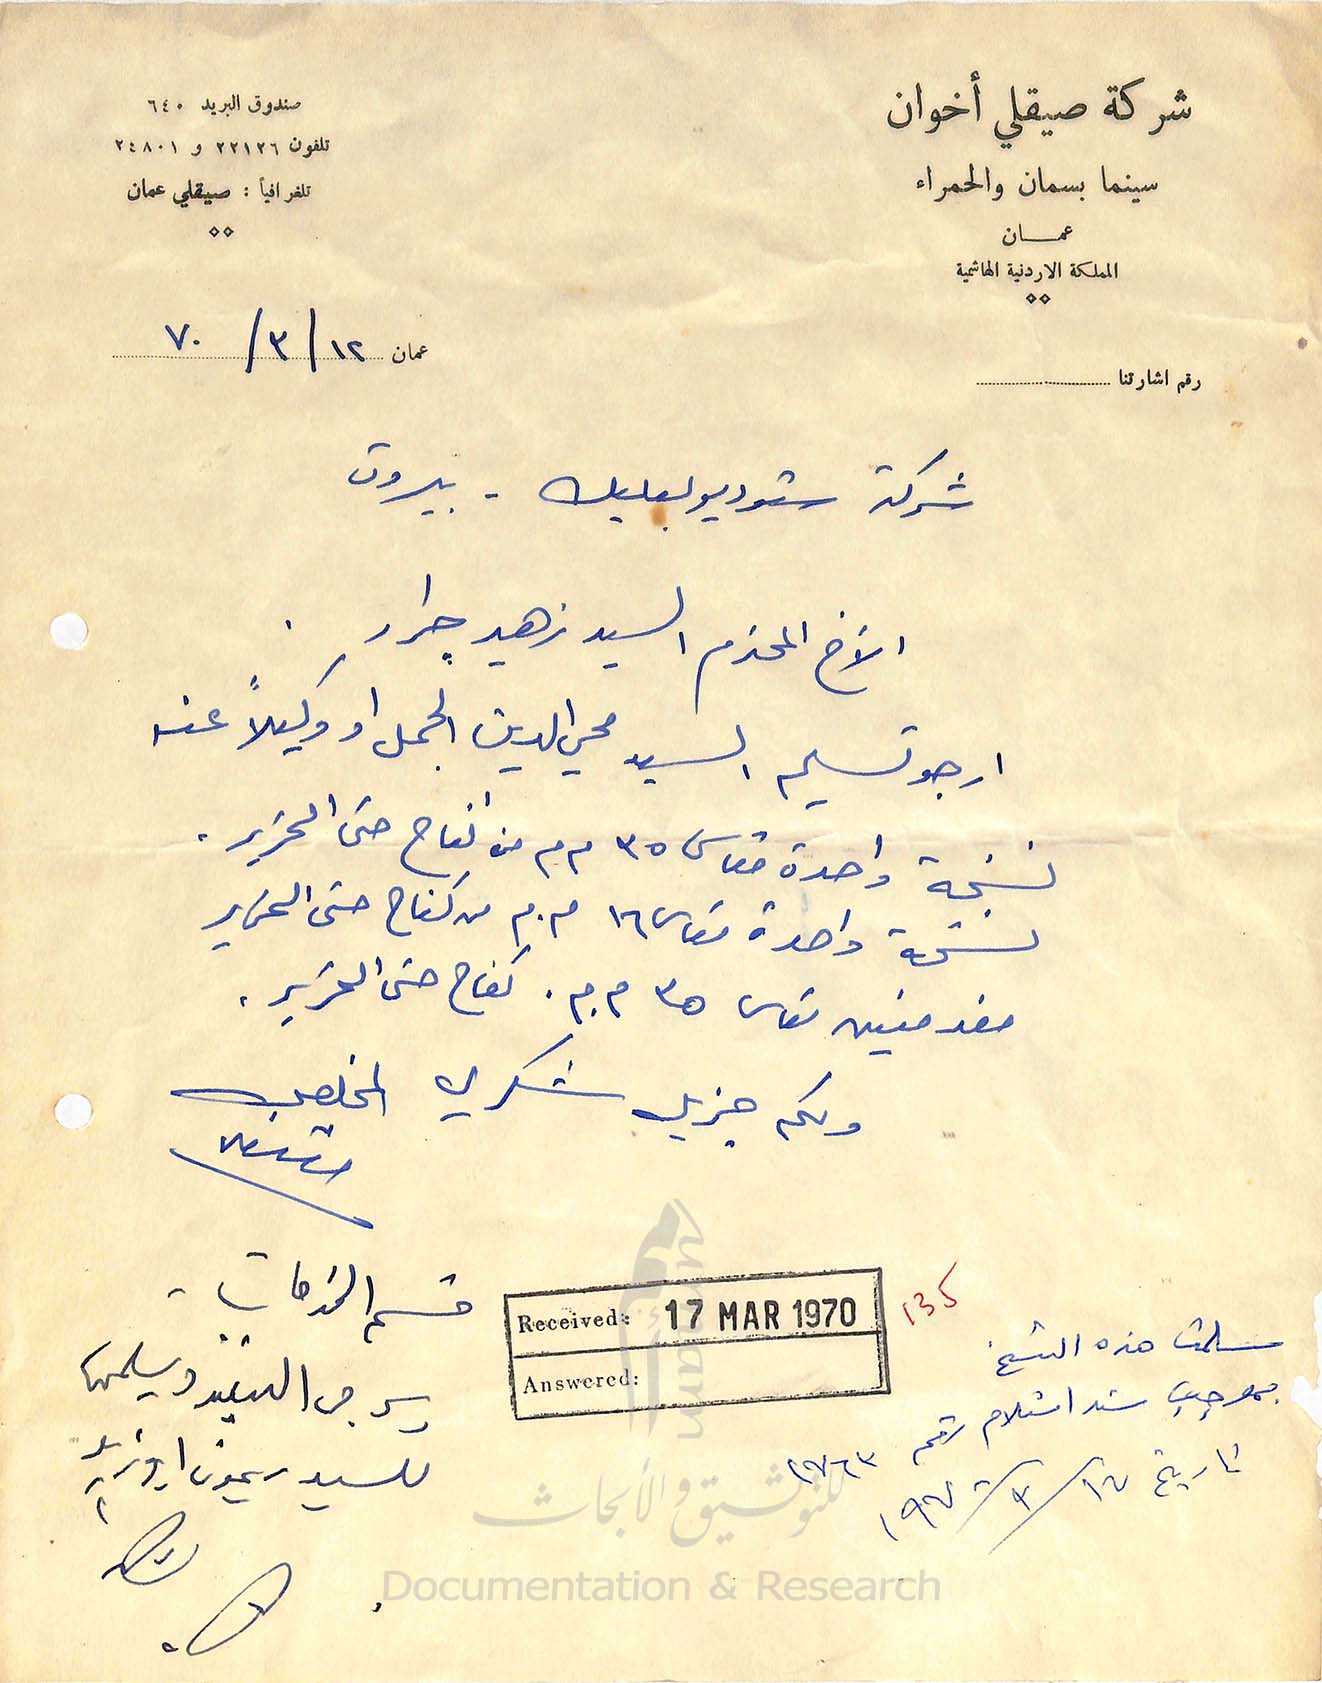 شركة صيقلي أخوان
سينما بسمان والحمراء
عمـــان
المملكة الاردنية الهاشمية
صندوق البريد ٦٤٠
تلفون ٢٢١٢٦ و ٢٤٨٠١
تلغرافياً : صيقلي عمان
عمان ١٢/٣/٧٠
رقم اشارتنا
شركة ستوديو بعلبك - بيروت
الأخ المحترم السيد زهير جرار
ارجو تسليم السيد محي الدين الجمل او وكيلاً عنه
نسخة واحدة مقاس ٣٥ م م من كفاح حتى التحرير .
نسخة واحدة مقاس ١٦ م.م من كفاح حتى التحرير
مقدمتين مقاس ٣٥ م.م . كفاح حتى التحرير .
ولكم جزيل شكري المخلص
قسم الخدمات -
يرجى التنفيذ وتسليمها
للسيد ريمون
Received: 17 MAR 1970
Answered:
135
سلمت هذه النسخ
بموجب سند استلام رقم
تاريخ ١٧/٣/١٩٧٠
أمم
umam
للتوثيق والأبحاث
Documentation & Research